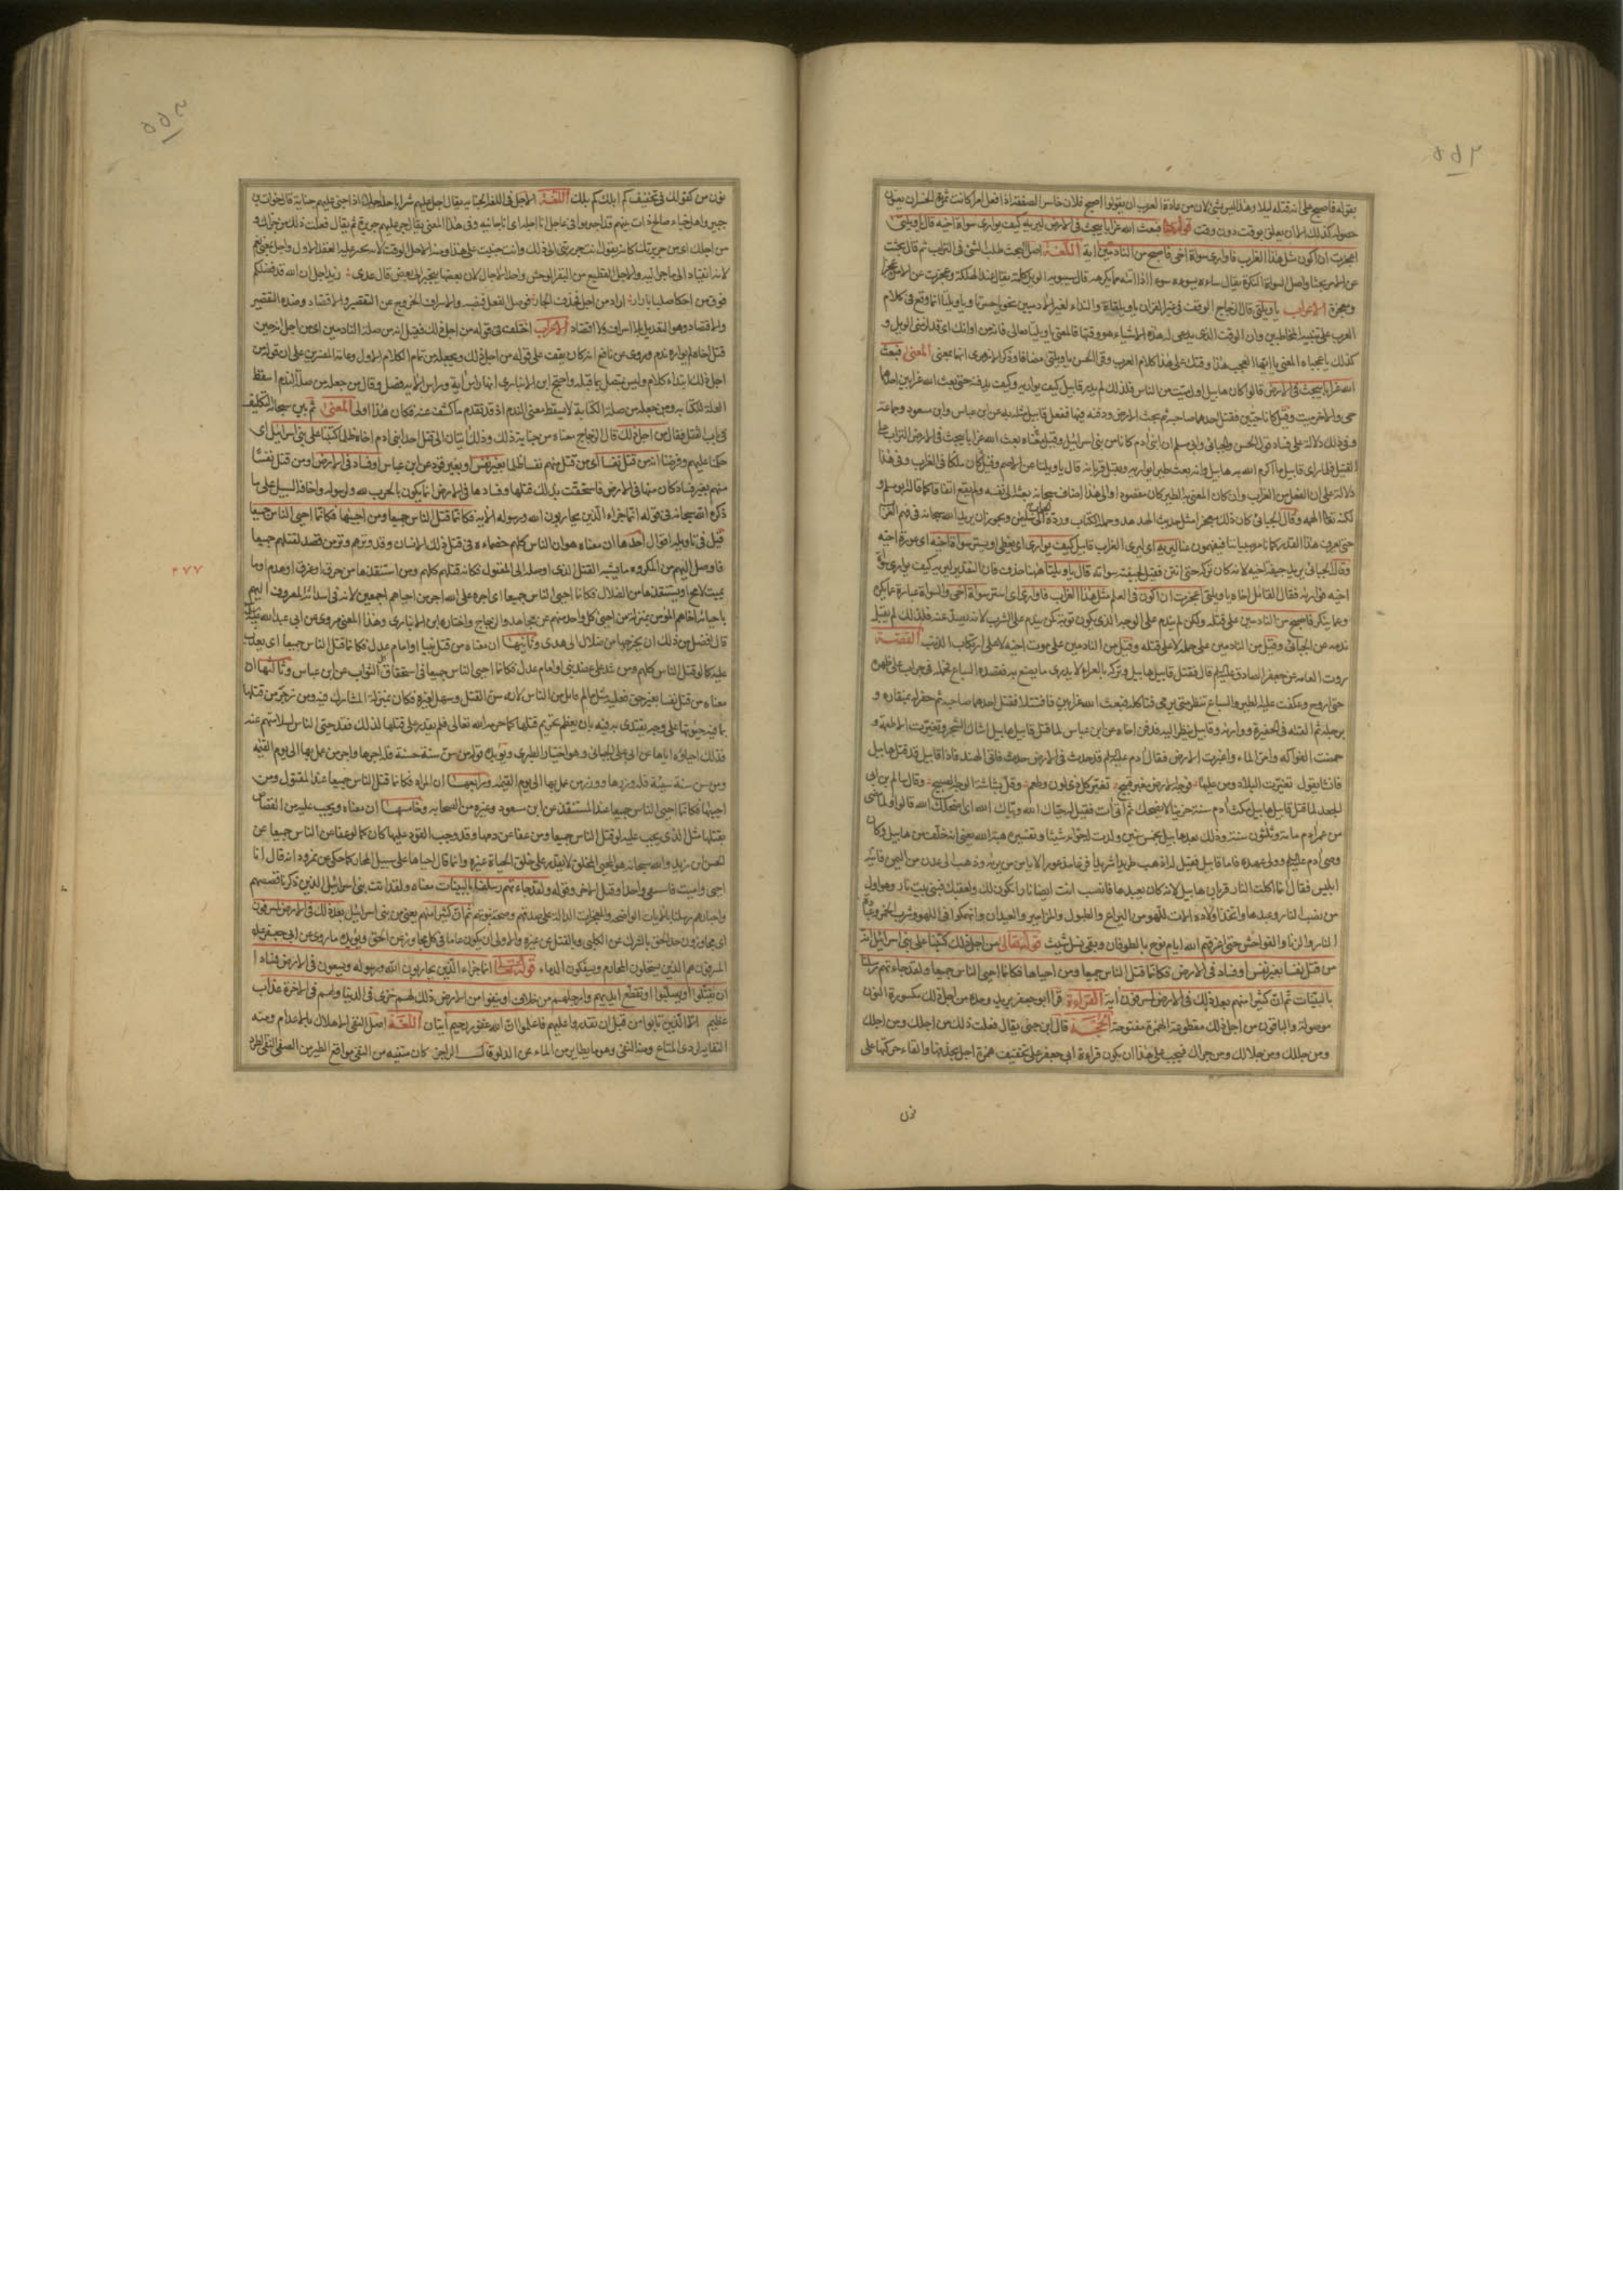 بقوله فاصبح على انه قتله ليلا وهذا ليس بشئ لان من عادة العرب ان يقولوا اصبح فلان خاسر الصفقة اذا فعل امرا كانت ثمرته الخسران يعنون
حصوله كذلك لا ان يعلق بوقت دون وقت قوله تعالى فبعث الله غرابا يبحث فى الارض ليريه كيف يوارى سواة اخيه قال ياويلتى
اعجزت ان اكون مثل هذا الغراب فاوارى سواة اخى فاصبح من النادمين اية اللغة اصل البحث طلب الشئ فى التراب ثم قال بحثت
عن الامر بحثا واصل السواة النكرة يقال ساءه يسوءه سوء اذا اتاه بما يكرهه قال سيبويه الويل كلمة يقال عند الهلكة وعجزت عن الامر عجزا
ومعجزة الاعراب يا ويلتى قال الزجاج الوقف فى غير القران ياويلتاه والنداء لغير الادميين نحو ياحسرتا وياويلتا انما وقع فى كلام
العرب على تنبيه المخاطبين وان الوقت الذى يدعى لهذه الاشياء هو وقتها فالمعنى يا ويلتا تعالى فانه من اوانك اى قد لزمنى الويل و
كذلك يا عجباه المعنى يا ايها العجب هذا وقتك على هذا كلام العرب وقرأ الحسن يا ويلتى مضافا وذكر الازهرى انها بمعنى المعنى فبعث
الله غرابا يبحث فى الارض قالوا كان هابيل اول ميت من الناس فلذلك لم يدر قابيل كيف يواريه وكيف يدفنه حتى بعث الله غرابين احدهما
حى والاخر ميت وقيل كانا حيين فقتل احدهما صاحبه ثم بحث الارض ودفنه فيها ففعل قابيل مثل به عن ابن عباس وابن مسعود وجماعة
وفى ذلك دلالة على فساد قول الحسن والجبائى وابى مسلم ان ابنى ادم كانا من بنى اسرائيل وقيل معناه بعث الله غرابا يبحث فى الارض التراب على
القتيل فلما راى قابيل ما اكرم الله به هابيل وانه بعث طيرا ليواريه وتقبل قربانه قال يا ويلتا عن الاصم وقيل كان ملكا فى الغراب وفى هذا
دلالة على ان الفعل من الغراب وان كان المعنى به الطير كان مقصودا ولهذا اضاف سبحانه بعثه الى نفسه ولم يقع اتفاقا كما قاله ابو مسلم و
لكنه تعالى الهمه وقال الجبائى كان ذلك معجزا مثل حديث الهدهد وحمله الكتاب ورده الجواب الى سليمن ويجوز ان يزيد الله سبحانه فى فهم الغراب
حتى يعرف هذا القدر كما نأمر صبياننا فيفهمون عنا ليريه اى ليرى الغراب قابيل كيف يوارى اى يغطى ويستر سواة اخيه اى عورة اخيه
وقال الجبائى يريد جيفة اخيه لانه كان تركه حتى انتن فقيل لجيفته سواة قال يا ويلتا ههنا حذف فان التقدير ليريه كيف يوارى سواة
اخيه فواراه فقال القاتل اخاه يا ويلتى اعجزت ان اكون فى العلم مثل هذا الغراب فاوارى اى استر سواة اخى والسواة عبارة عما يكره
وعما ينكر فاصبح من النادمين على قتله ولكن لم يندم على الوجه الذى يكون توبة كمن يندم على الشرب لانه يصدعه فلذلك لم يقبل
ندمه عن الجبائى وقيل من النادمين على حمله لا على قتله وقيل من النادمين على موت اخيه لا على ارتكاب الذنب القصة
روت العامة عن جعفر الصادق عليه السلم قال قتل قابيل هابيل وتركه بالعراء لا يدرى ما يصنع به فقصده السباع فحمله فى جراب على ظهره
حتى اروح وعكفت عليه الطير والسباع تنظر متى يرمى فتاكله فبعث الله غرابين فاقتتلا فقتل احدهما صاحبه ثم حفر له بمنقاره و
برجليه ثم القاه فى الحفيرة وواراه وقابيل ينظر اليه فدفن اخاه عن ابن عباس لما قتل قابيل هابيل اشاك الشجر وتغيرت الاطعمة و
حمضت الفواكه وامر الماء واغبرت الارض فقال ادم عليه السلم قد حدث فى الارض حدث فاتى الهند فاذا قابيل قد قتل هابيل
فانشا يقول تغيرت البلاد ومن عليها فوجه الارض مغبر قبيح تغير كل ذى لون وطعم وقل بشاشة الوجه الصبيح وقال سالم بن ابى
الجعد لما قتل قابيل هابيل مكث ادم سنة حزينا لا يضحك ثم اتى ات فقيل له حياك الله وبياك الله اى اضحكك الله قالوا ولما مضى
من عمر ادم مائة وثلثون سنة وذلك بعد هابيل بخمس سنين ولدت له حواء شيثا وتفسيره هبة الله يعنى انه خلف من هابيل وكان
وصى ادم عليه السلم وولى عهده فاما قابيل فقيل له اذهب طريدا شريدا فزعا مذعورا لا يامن من يريه وذهب الى عدن من اليمن فاتاه
ابليس فقال انما اكلت النار قربان هابيل لانه كان يعبدها فانصب انت ايضا نارا تكون لك ولعقبك فبنى بيت نار وهو اول
من نصب النار وعبدها واتخذ اولاده الات اللهو من اليراع والطبول والمزامير والعيدان وانهمكوا فى اللهو وشرب الخمر وعبادة
النار والزنا والفواحش حتى اغرقهم الله ايام نوح بالطوفان وبقى نسل شيث قوله تعالى من اجل ذلك كتبنا على بنى اسرائيل انه
من قتل نفسا بغير نفس او فساد فى الارض فكانما قتل الناس جميعا ومن احياها فكانما احيى الناس جميعا ولقد جاءتهم رسلنا
بالبينات ثم ان كثيرا منهم بعد ذلك فى الارض لمسرفون اية القراءة قرأ ابو جعفر يزيد وحده من اجل ذلك بكسورة النون
موصولة والباقون من اجل ذلك مقطوعة الهمزة مفتوحة الحجة قال ابن جنى يقال فعلت ذلك من اجلك ومن اجلك
ومن جللك ومن جلالك ومن جراك فيجب على هذا ان يكون قراءة ابى جعفر على تخفيف همزة اجل بحذفها والقاء حركتها على
نون
نون من كقولك فى تخفيف كم ابلك كم بلك اللغة الاجل فى اللغة الجناية يقال اجل عليهم شرا اذا جنى عليهم جناية قال خوات بن
جبير واهل خباء صالح ذات بينهم قد احتربوا فى عاجل انا اجله اى انا جانيه وفى هذا المعنى يقال جر عليهم جريرة ثم يقال فعلت ذلك من جراك و
من اجلك اى من جريرتك كانه يقول انت جررتنى الى ذلك وانت جنيت على هذا ومنه الاجل الوقت لانه يجر عليه العقد الاول واجل بمعنى نعم
لانه انقياد الى ما جر اليه والاجل القطيع من البقر الوحش واحد الاجال لان بعضها ينجر الى بعض قال عدى اجل ان الله قد فضلكم
فوق من احكا صلبا بازار اراد من اجل فحذف الجار فوصل الفعل فنصبه والاسراف الخروج عن التقصير والاقتصاد وضده التقصير
والاقتصاد وهو التعديل بلا اسراف ولا اقتصاد الاعراب اختلف فى قوله من اجل ذلك فقيل انه من صلة النادمين اى من اجل انه حين
قتل اخاه لم يواره ندم وروى عن نافع انه كان يقف على قوله من اجل ذلك ويجعله من تمام الكلام الاول وعامة المفسرين على ان قوله من
اجل ذلك ابتداء كلام وليس بمتصل بما قبله واحتج ابن الانبارى انها راس اية وراس الاية فصل وقال من جعله من صلة الندم اسقط
العلة للكتابة ومن جعله من صلة الكتابة لا يسقط معنى الندم اذ قد تقدم ما كشف عنه فكان هذا اولى المعنى ثم بين سبحانه التكليف
فى باب القتل فقال من اجل ذلك قال الزجاج معناه من جناية ذلك وذلك اشارة الى قتل احد ابنى ادم اخاه ظلما كتبنا على بنى اسرائيل اى
حكمنا عليهم وفرضنا انه من قتل نفسا اى من قتل منهم نفسا ظلما بغير نفس او بغير قود عن ابن عباس او فساد فى الارض او من قتل نفسا
منهم بغير فساد كان منها فى الارض فاستحقت بذلك قتلها وفسادها فى الارض انما يكون بالحرب لله ولرسوله واخافة السبيل على ما
ذكره الله سبحانه فى قوله انما جزاء الذين يحاربون الله ورسوله الاية فكانما قتل الناس جميعا ومن احياها فكانما احيى الناس جميعا
قيل فى تاويله اقوال احدها ان معناه هو ان الناس كلهم خصماءه فى قتل ذلك الانسان وقد وترهم وتر من قصد لقتلهم جميعا
فاوصل اليهم من المكروه ما يشبه القتل الذى اوصله الى المقتول فكانه قتلهم كلهم ومن استنقذها من حرق او غرق او هدم او ما
يميت لا محالة او يستنقذها من الضلال فكانما احيى الناس جميعا اى اجره على الله اجر من احياهم اجمعين لانه فى اسدائه المعروف اليهم
باحيائه اخاهم المؤمن بمنزلة من احيى كل واحد منهم عن مجاهد والزجاج واختاره ابن الانبارى وهذا المعنى مروى عن ابى عبد الله
قال افضل من ذلك ان يخرجها من ضلال الى هدى وثانيها ان معناه من قتل نبيا او امام عدل فكانما قتل الناس جميعا اى يعذب
عليه كما لو قتل الناس كلهم ومن شد على عضد نبى او امام عدل فكانما احيى الناس جميعا فى استحقاق الثواب عن ابن عباس وثالثها ان
معناه من قتل نفسا بغير حق فعليه مثل ماثم كل قاتل من الناس لانه سن القتل وسهله لغيره فكان بمنزلة المشارك فيه ومن زجر من قتلها
بما فيه حيوتها على وجه يقتدى به فيه بان يعظم تحريم قتلها كما حرمه الله تعالى فلم يقدم على قتلها لذلك فقد حيى الناس لسلامتهم منه
فذلك احياؤه اياها عن ابى على الجبائى وهو اختيار الطبرى ويؤيده قوله من سن سنة حسنة فله اجرها واجر من عمل بها الى يوم القيمة
ومن سن سنة سيئة فله وزرها ووزر من عمل بها الى يوم القيمة ورابعها ان المراد فكانما قتل الناس جميعا عند المقتول ومن
احياها فكانما احيى الناس جميعا عند المستنقذ عن ابن مسعود وغيره من الصحابة وخامسها ان معناه ويجب عليه من القصاص
بقتلها مثل الذى يجب عليه لو قتل الناس جميعا ومن عفا عن دمها وقد وجب القود عليها كان كما لو عفا عن الناس جميعا عن
الحسن وابن زيد والله سبحانه هو المحيى للخلق لا يقدر على خلق الحياة غيره وانما قال احياها على سبيل المجاز كما حكى عن نمرود انه قال انا
احيى واميت فاستبقى واحدا وقتل الاخر وقوله ولقد جاءتهم رسلنا بالبينات معناه ولقد اتت بنى اسرائيل الذين ذكرنا قصصهم
واخبارهم رسلنا بالايات الواضحة والمعجزات الدالة على صدقهم وصحة نبوتهم ثم ان كثيرا منهم يعنى من بنى اسرائيل بعد ذلك فى الارض لمسرفون
اى مجاوزون حد الحق بالشرك عن الكلبى وبالقتل عن غيره والاولى ان يكون عاما فى كل مجاوز عن الحق ويؤيده ما روى عن ابى جعفر عليه
المسرفون هم الذين يستحلون المحارم ويسفكون الدماء قوله تعالى انما جزاء الذين يحاربون الله ورسوله ويسعون فى الارض فسادا
ان يقتلوا او يصلبوا او تقطع ايديهم وارجلهم من خلاف او ينفوا من الارض ذلك لهم خزى فى الدنيا ولهم فى الاخرة عذاب
عظيم الا الذين تابوا من قبل ان تقدروا عليهم فاعلموا ان الله غفور رحيم ايتان اللغة اصل النفى الاهلاك بالاعدام ومنه
النفاية لردى المتاع ومنه النفى وهو ما تطاير من الماء عن الدلو قال الراجز كان متنيه من النفى مواقع الطير من الصفى النفى الطرد